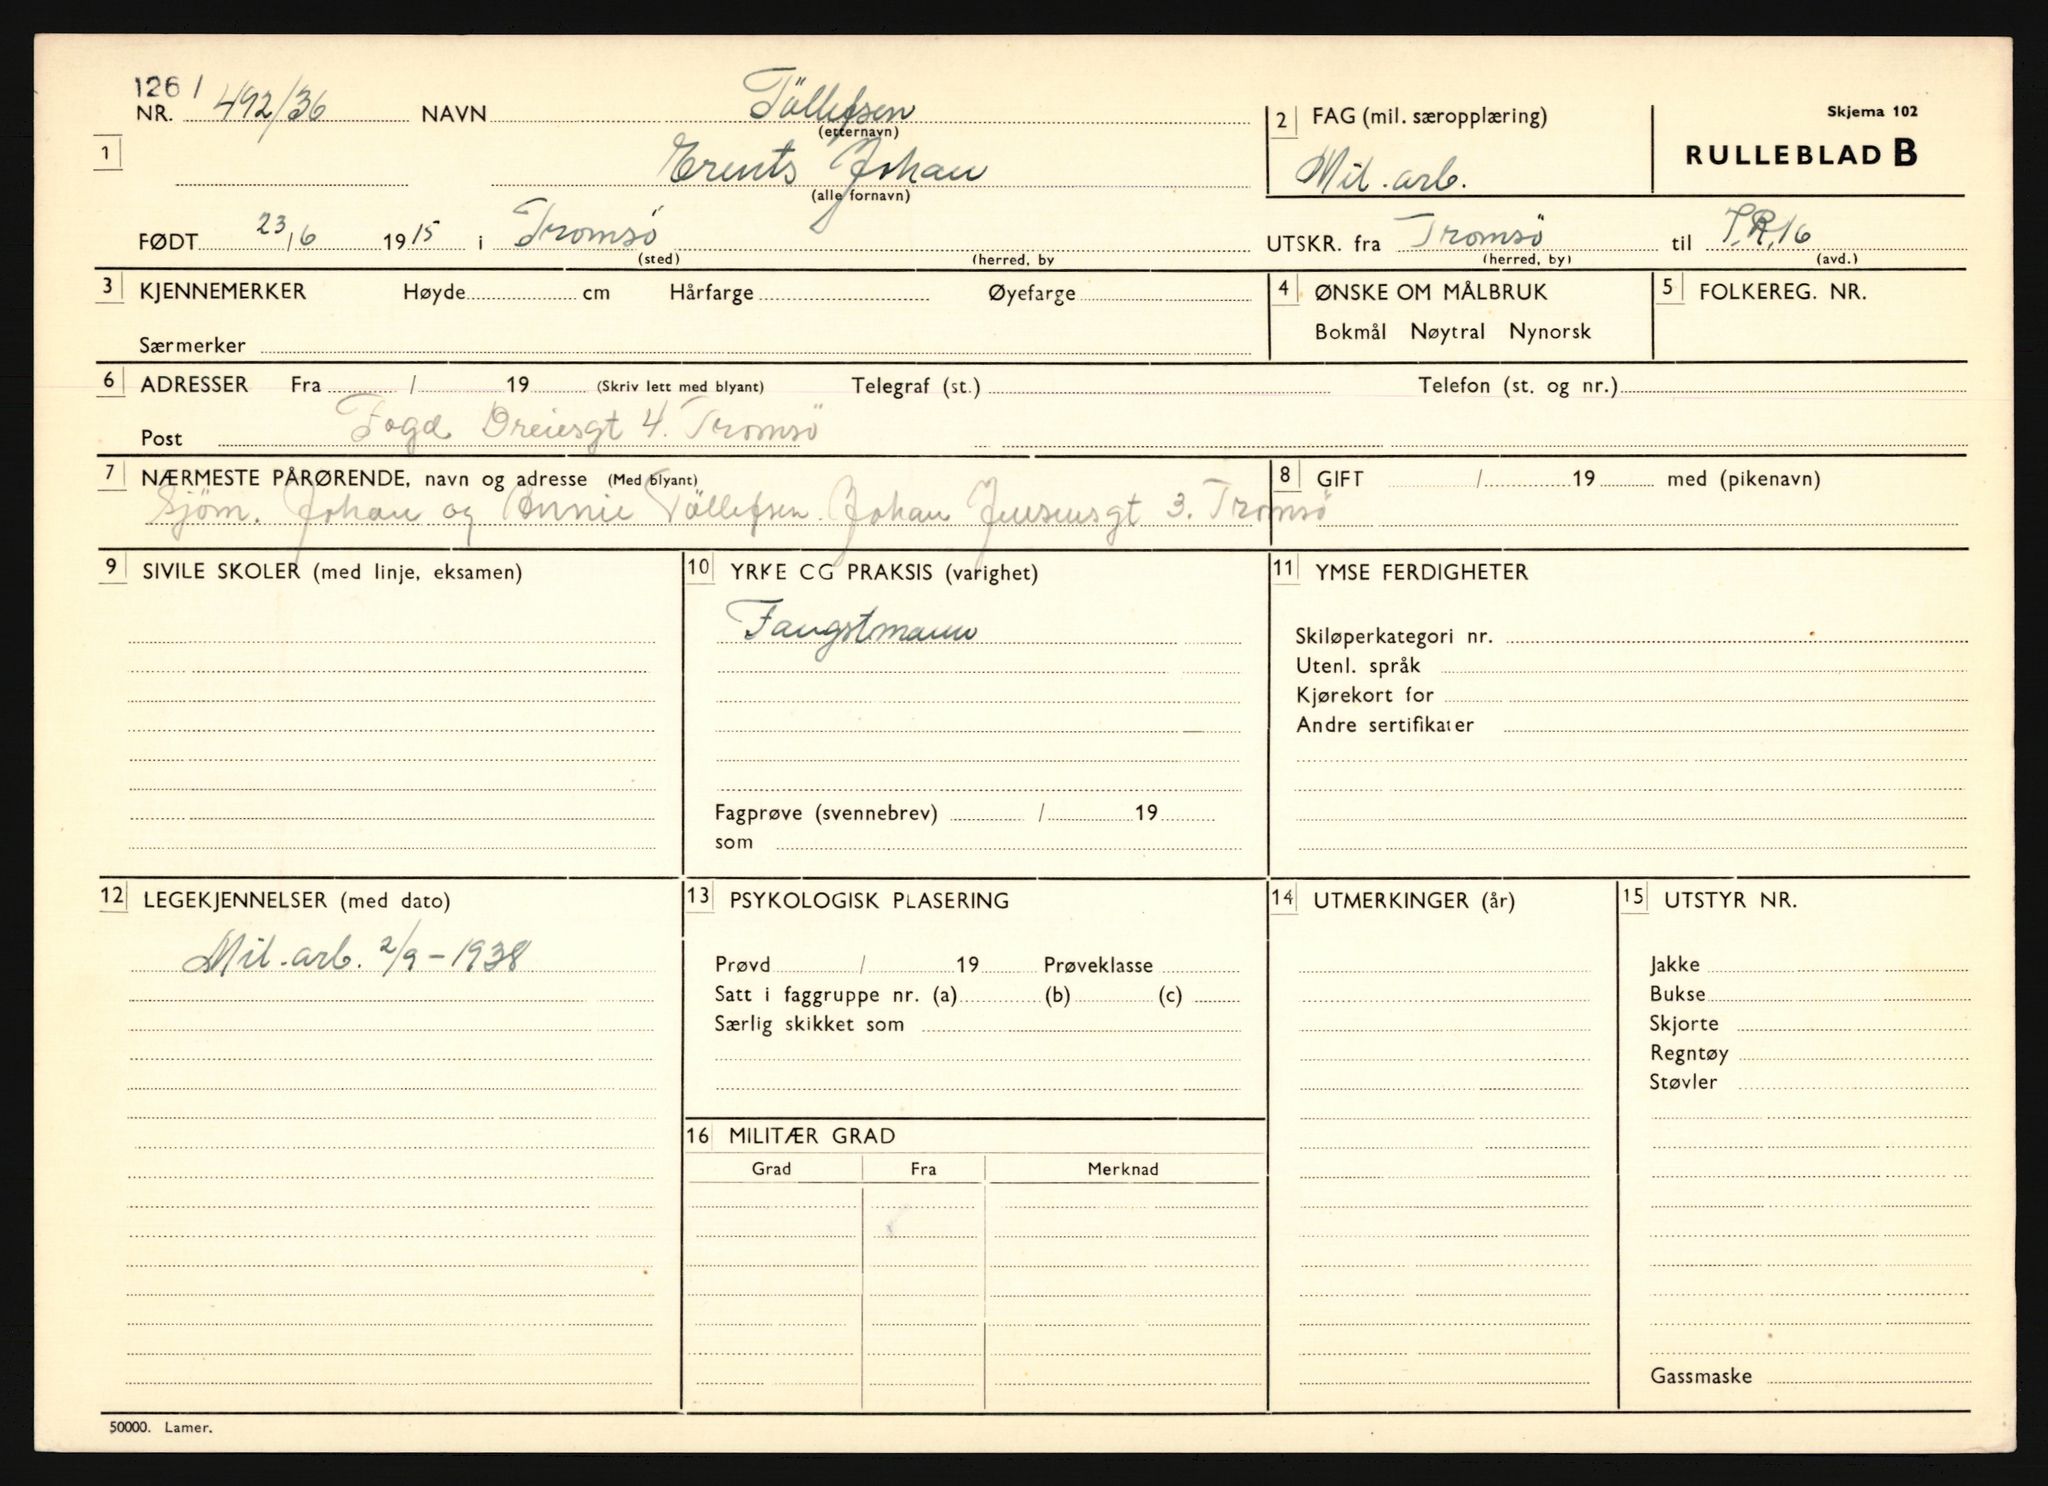 126 /
NR. 492/36 NAVN Töllefsen
(etternavn)
1 Erents Johan
(alle fornavn)
2 FAG (mil. særopplæring)
Mil. arb.
Skjema 102
RULLEBLAD B
FØDT 23/6 1915 i Tromsö
(sted) (herred, by
UTSKR. fra Tromsö til I.R.16
(herred, by) (avd.)
3 KJENNEMERKER Høyde cm Hårfarge Øyefarge
Særmerker
4 ØNSKE OM MÅLBRUK
Bokmål Nøytral Nynorsk
5 FOLKEREG. NR.
6 ADRESSER Fra / 19 (Skriv lett med blyant) Telegraf (st.) Telefon (st. og nr.)
Post Fogd Dreiesgt 4. Tromsö
7 NÆRMESTE PÅRØRENDE, navn og adresse (Med blyant)
Sjøm. Johan og Annie Töllefsen. Johan Jensensgt 3. Tromsö
8 GIFT / 19 med (pikenavn)
9 SIVILE SKOLER (med linje, eksamen)
10 YRKE CG PRAKSIS (varighet)
Fangstmann
Fagprøve (svennebrev) / 19
som
11 YMSE FERDIGHETER
Skiløperkategori nr.
Utenl. språk
Kjørekort for
Andre sertifikater
12 LEGEKJENNELSER (med dato)
Mil. arb. 2/9 - 1938
13 PSYKOLOGISK PLASERING
Prøvd / 19 Prøveklasse
Satt i faggruppe nr. (a) (b) (c)
Særlig skikket som
14 UTMERKINGER (år)
15 UTSTYR NR.
Jakke
Bukse
Skjorte
Regntøy
Støvler
Gassmaske
16 MILITÆR GRAD
Grad Fra Merknad
50000. Lamer.